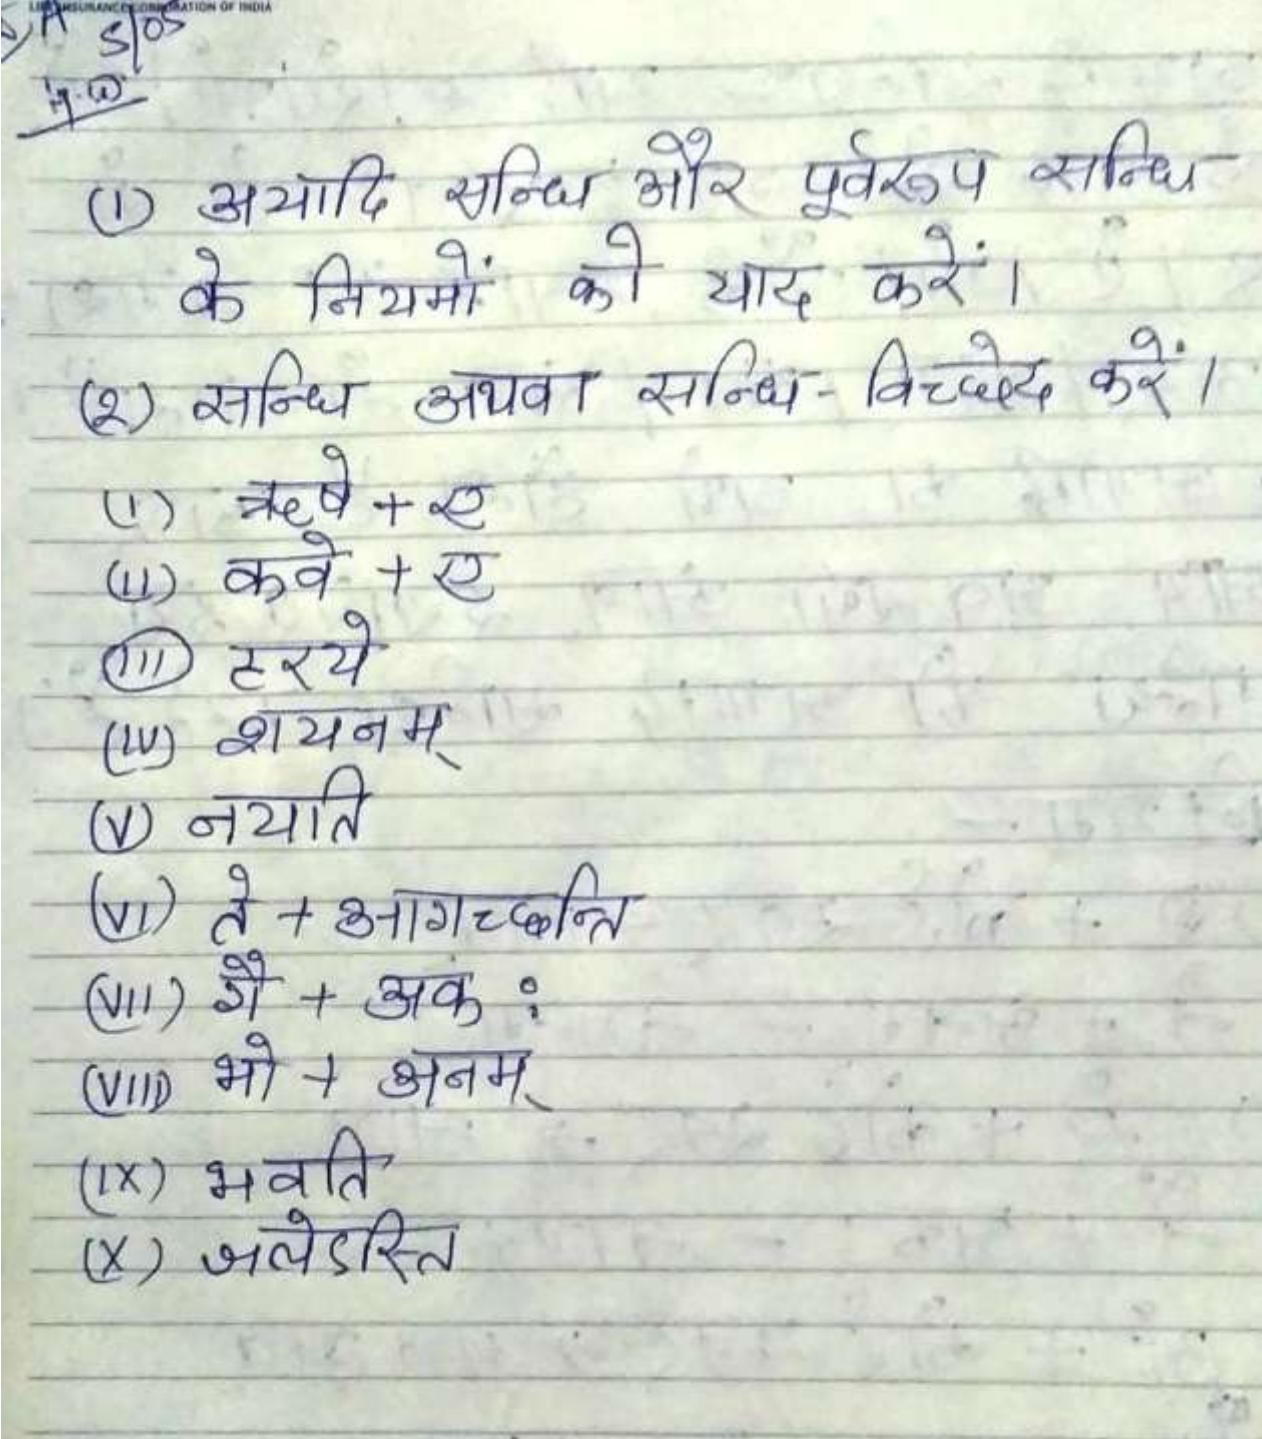 LIFE INSURANCE CORPORATION OF INDIA
A 5/05
H.W
(1) अयादि सन्धि और पूर्वरूप सन्धि
के नियमों को याद करें।
(२) सन्धि अथवा सन्धि-विच्छेद करें।
(i) ऋषे + ए
(ii) कवे + ए
(iii) हरये
(iv) शयनम्
(v) नयति
(vi) ते + आगच्छन्ति
(vii) गै + अक :
(viii) भो + अनम्
(ix) भवति
(x) जलेऽस्ति